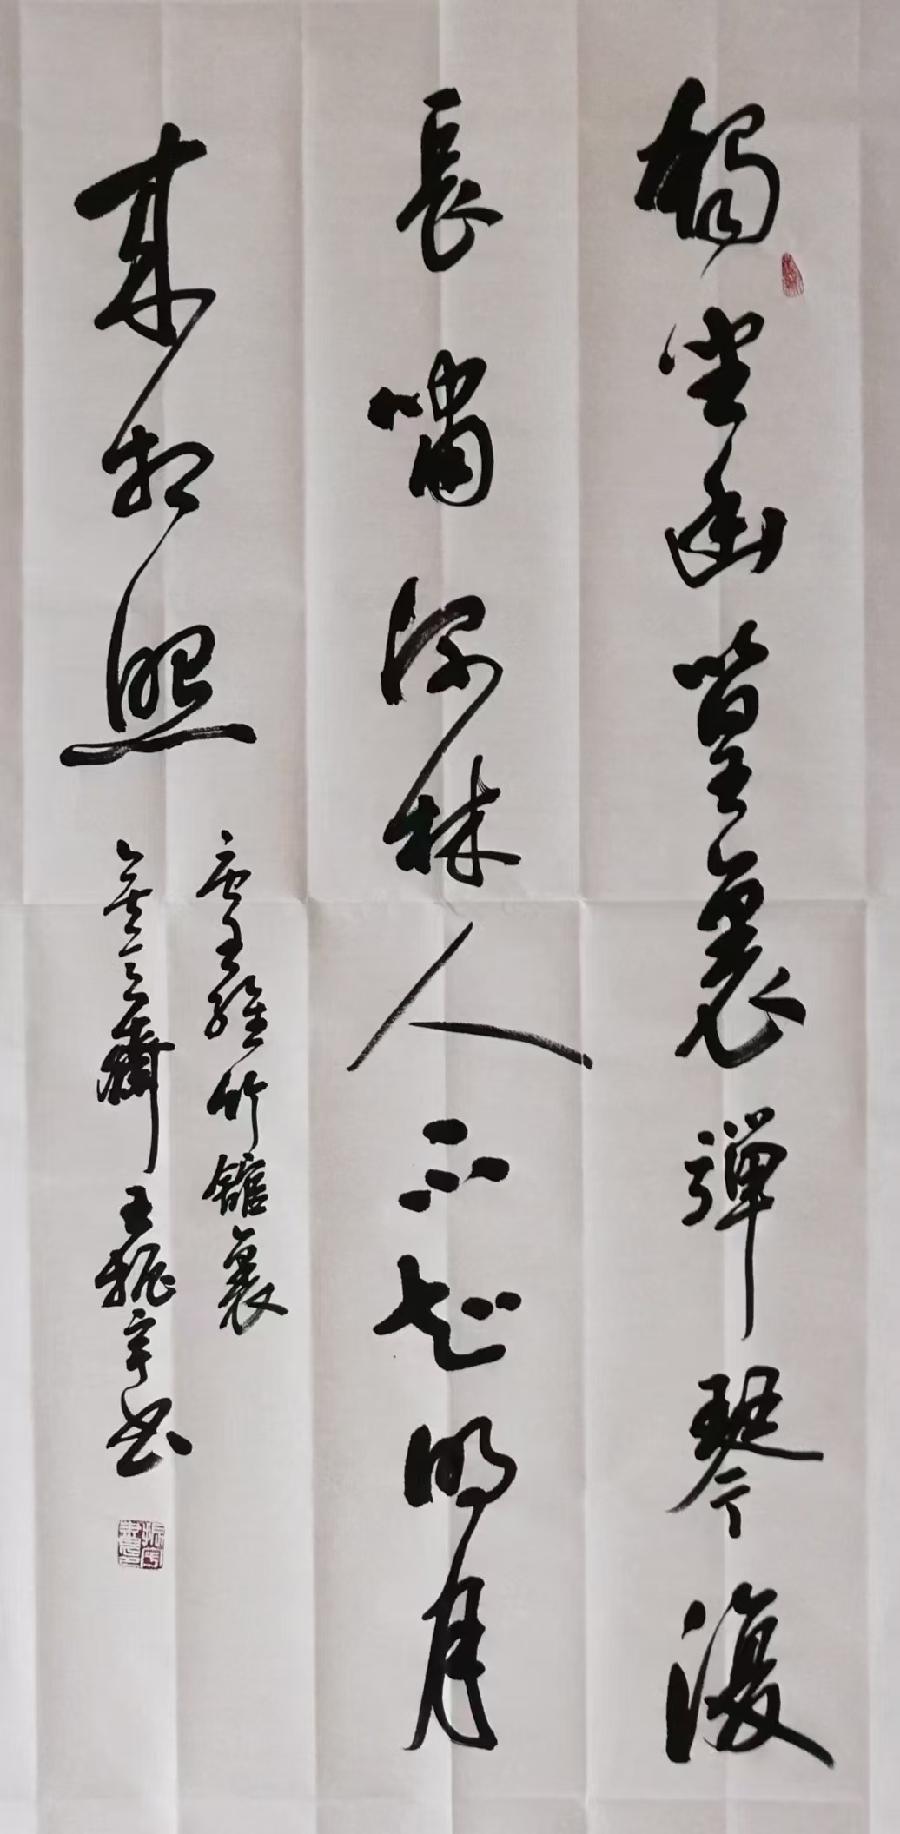 獨坐幽篁裏彈琴復
長嘯深林人不知明月
來相照
唐王維竹館裏
王 宇書